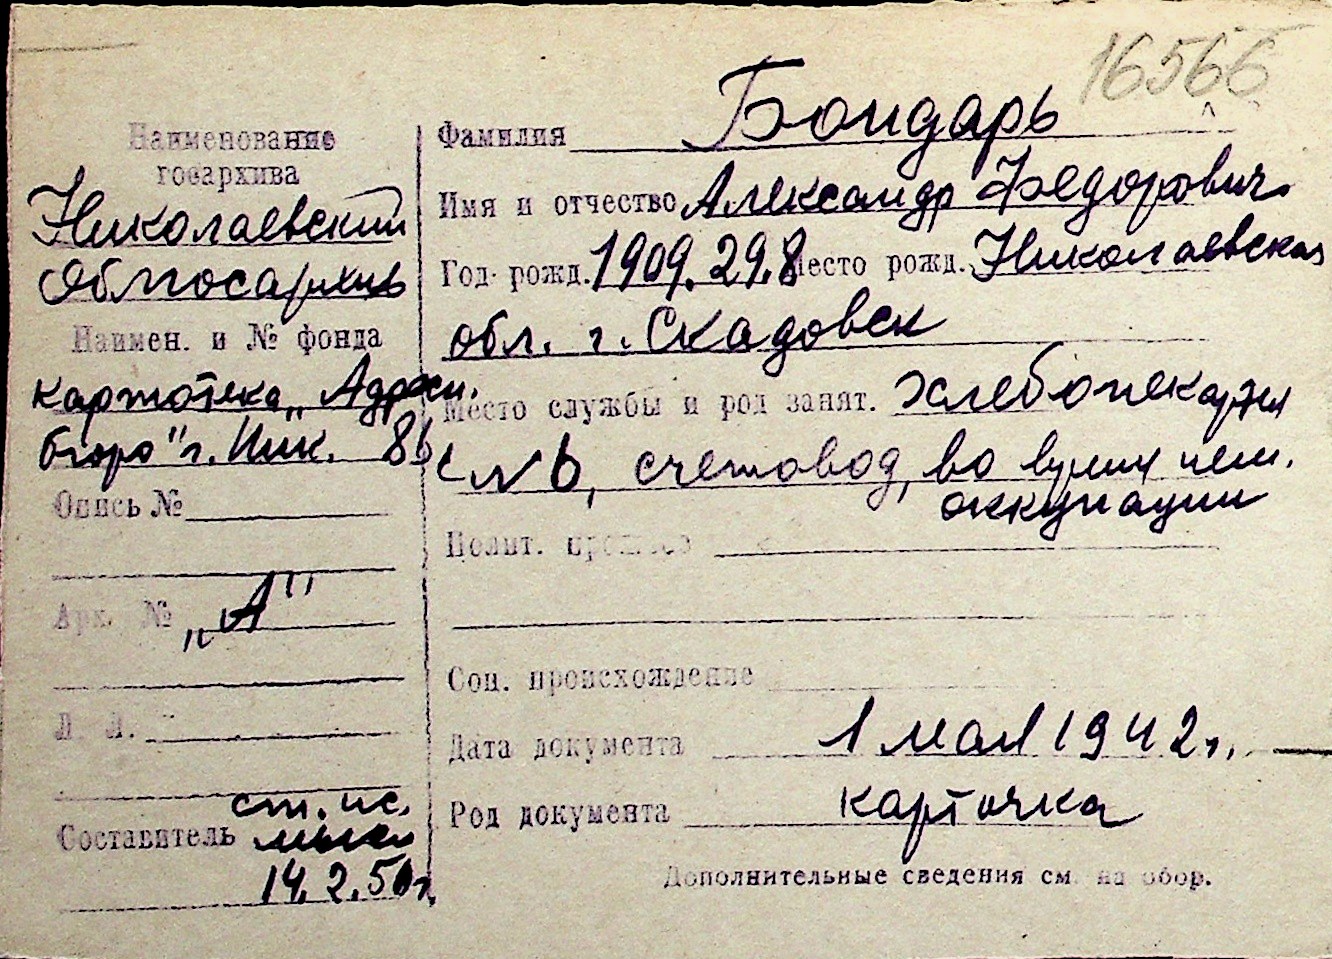 16566
Наименование
госархива
Николаевский
Облгосархив
Наимен. и № фонда
картотека „Адресн.
бюро" г. Ник.
Опись №
Арх. № „А"
Л. Л.
Составитель ст. ис.
14.2.50г.
Фамилия Бондарь
Имя и отчество Александр Федорович
Год рожд. 1909.29.8 Место рожд. Николаевская
обл. г. Скадовск
Место службы и род занят. хлебопекарня
№ 6, счетовод, во время нем.
оккупации
Полит. прошлое
Соц. происхождение
Дата документа 1 мая 1942г.
Род документа карточка
Дополнительные сведения см. на обор.